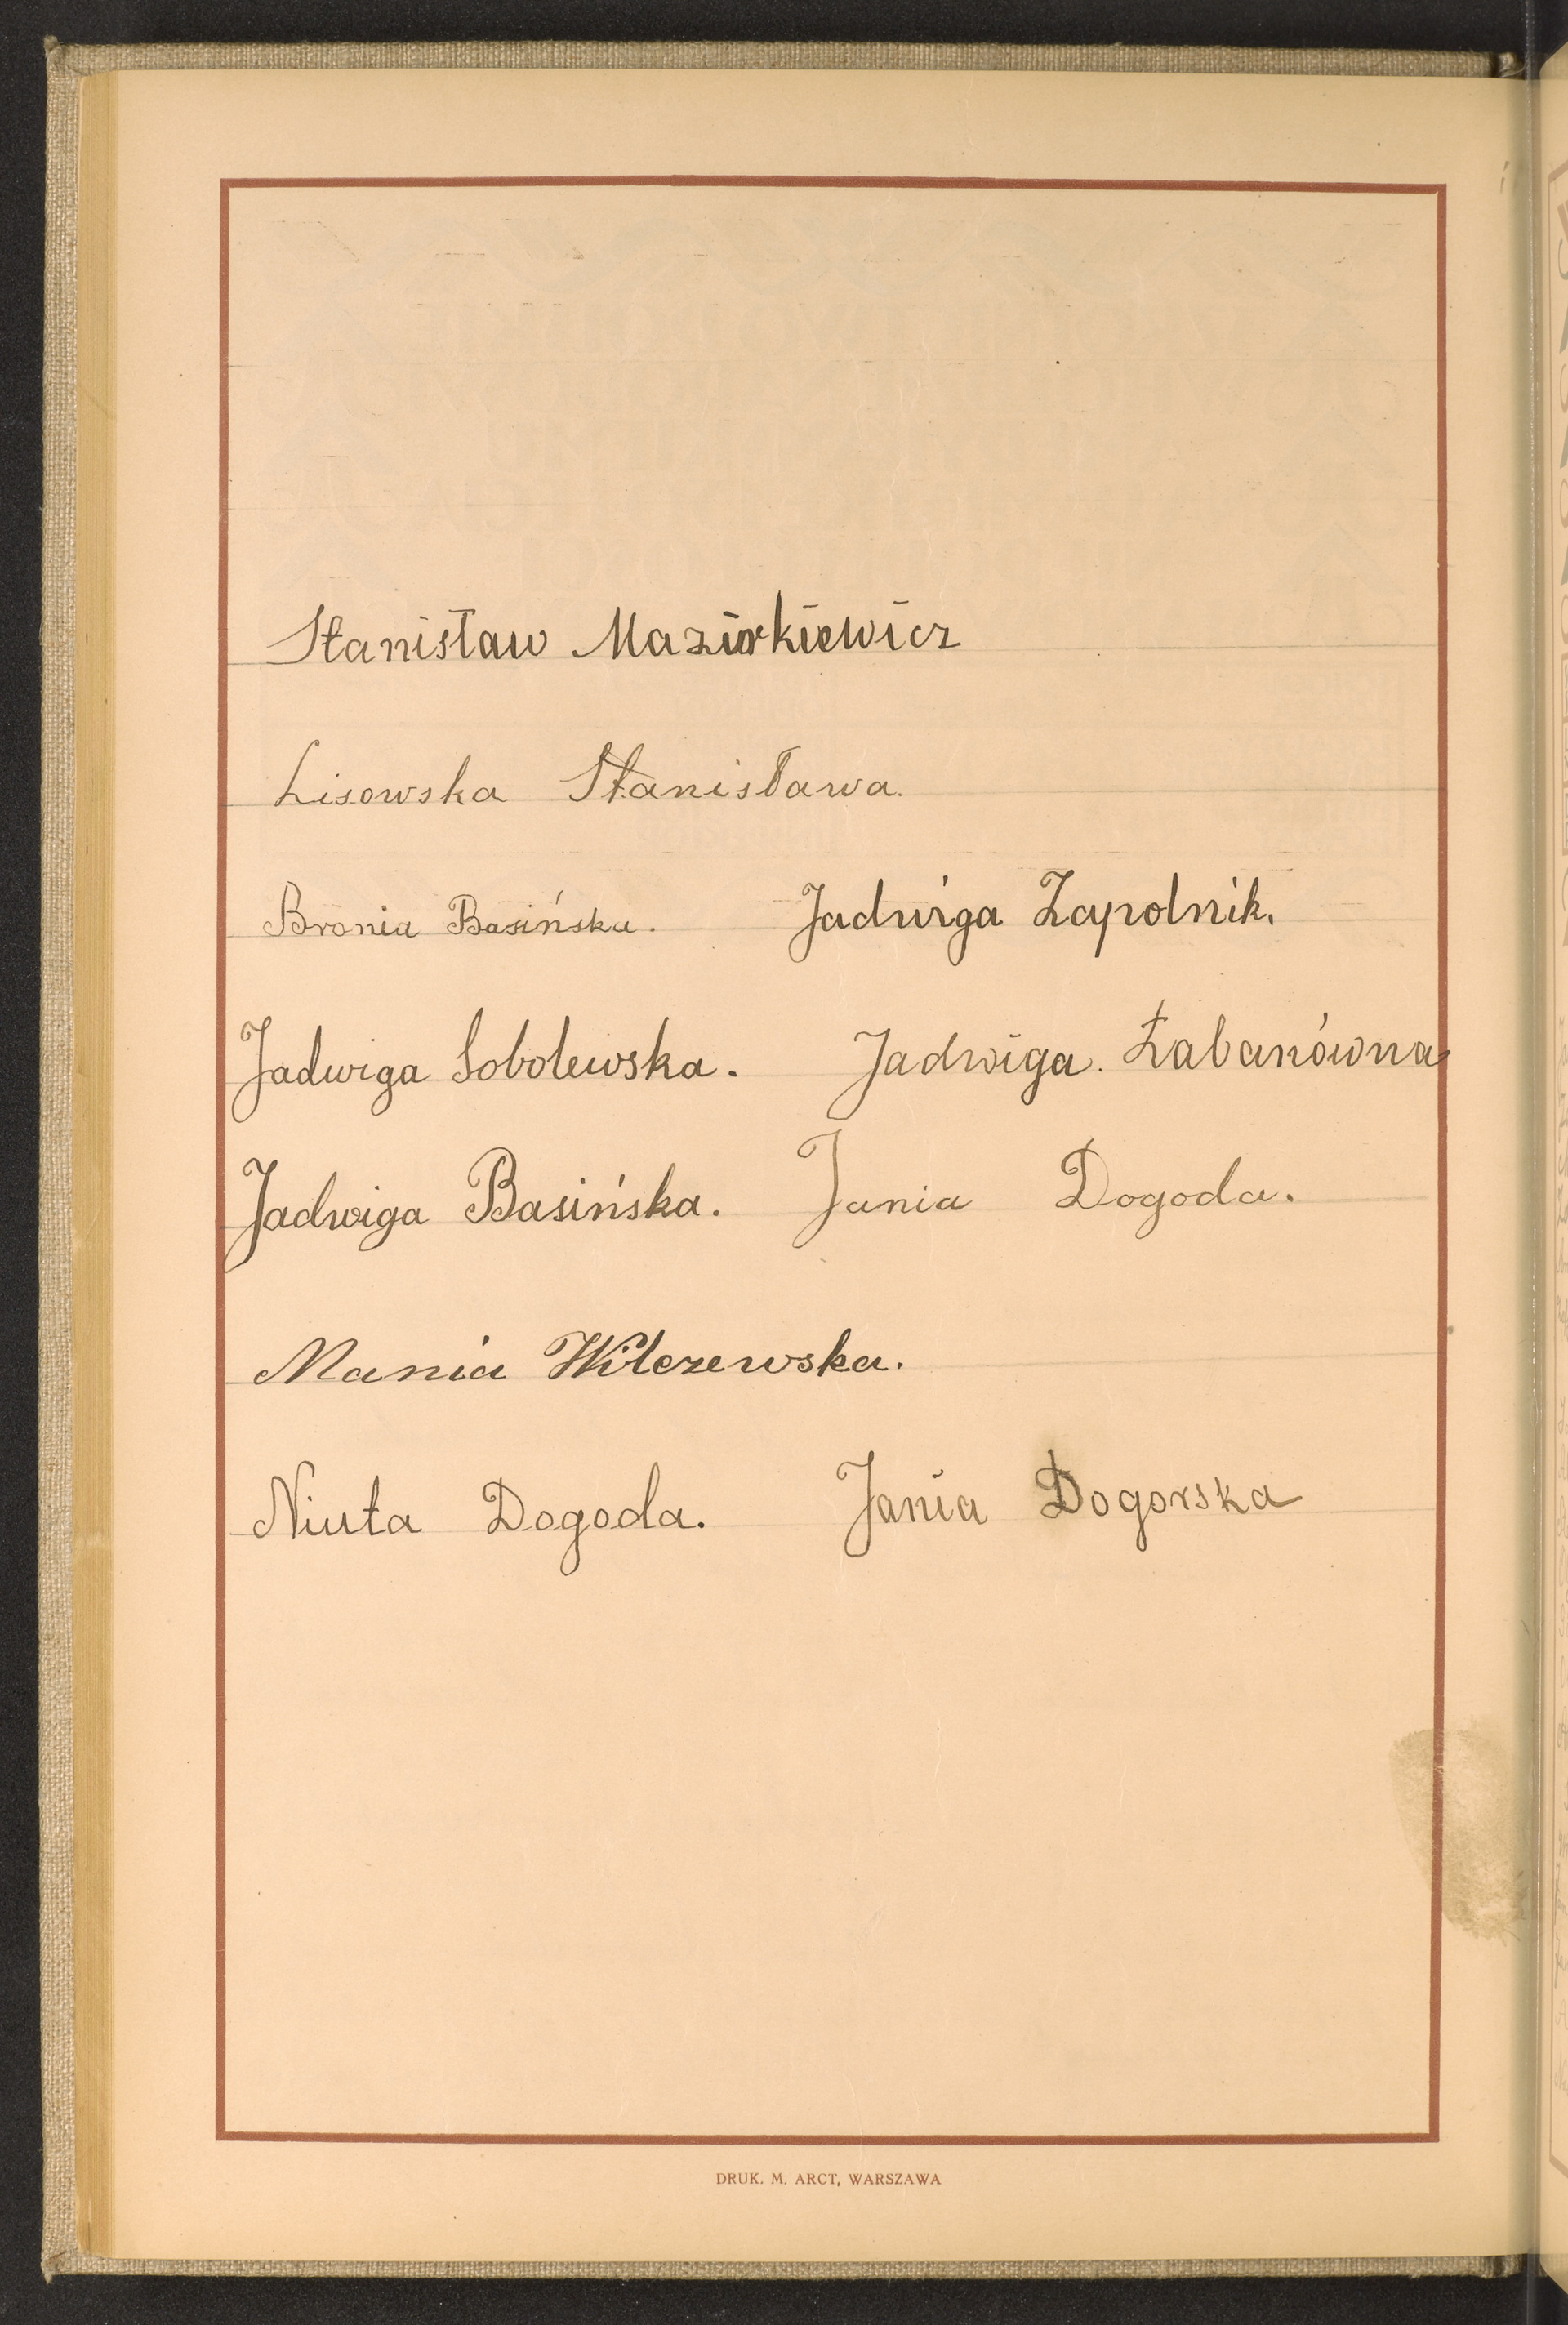 Stanisław Mazurkiewicz
Lisowska Stanisława.
Bronia Basińska. Jadwiga Zapolnik.
Jadwiga Sobolewska. Jadwiga. Łabanówna
Jadwiga Basińska. Jania Dogoda.
Mania Wilczewska.
Niuta Dogoda. Jania Dogorska
DRUK. M. ARCT, WARSZAWA